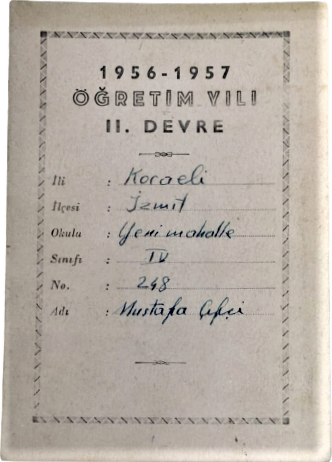 1956-1957
ÖĞRETİM YILI
II. DEVRE
İli : Kocaeli
İlçesi : İzmit
Okulu : Yenimahalle
Sınıfı : IV
No. : 248
Adı : Mustafa Çifçi